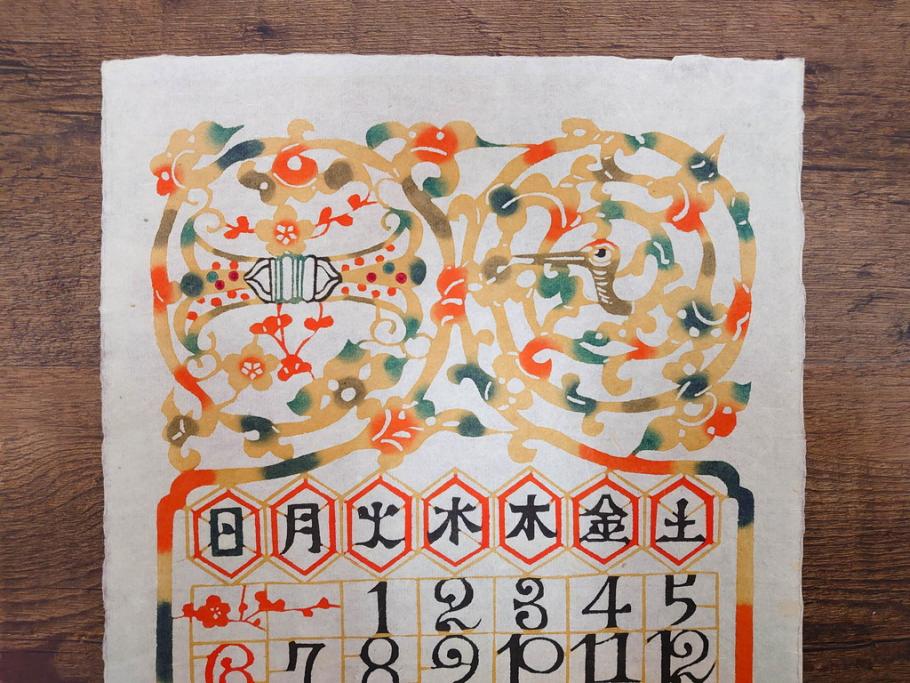 日 月 火 水 木 金 土
1 2 3 4 5
6 7 8 9 10 11 12